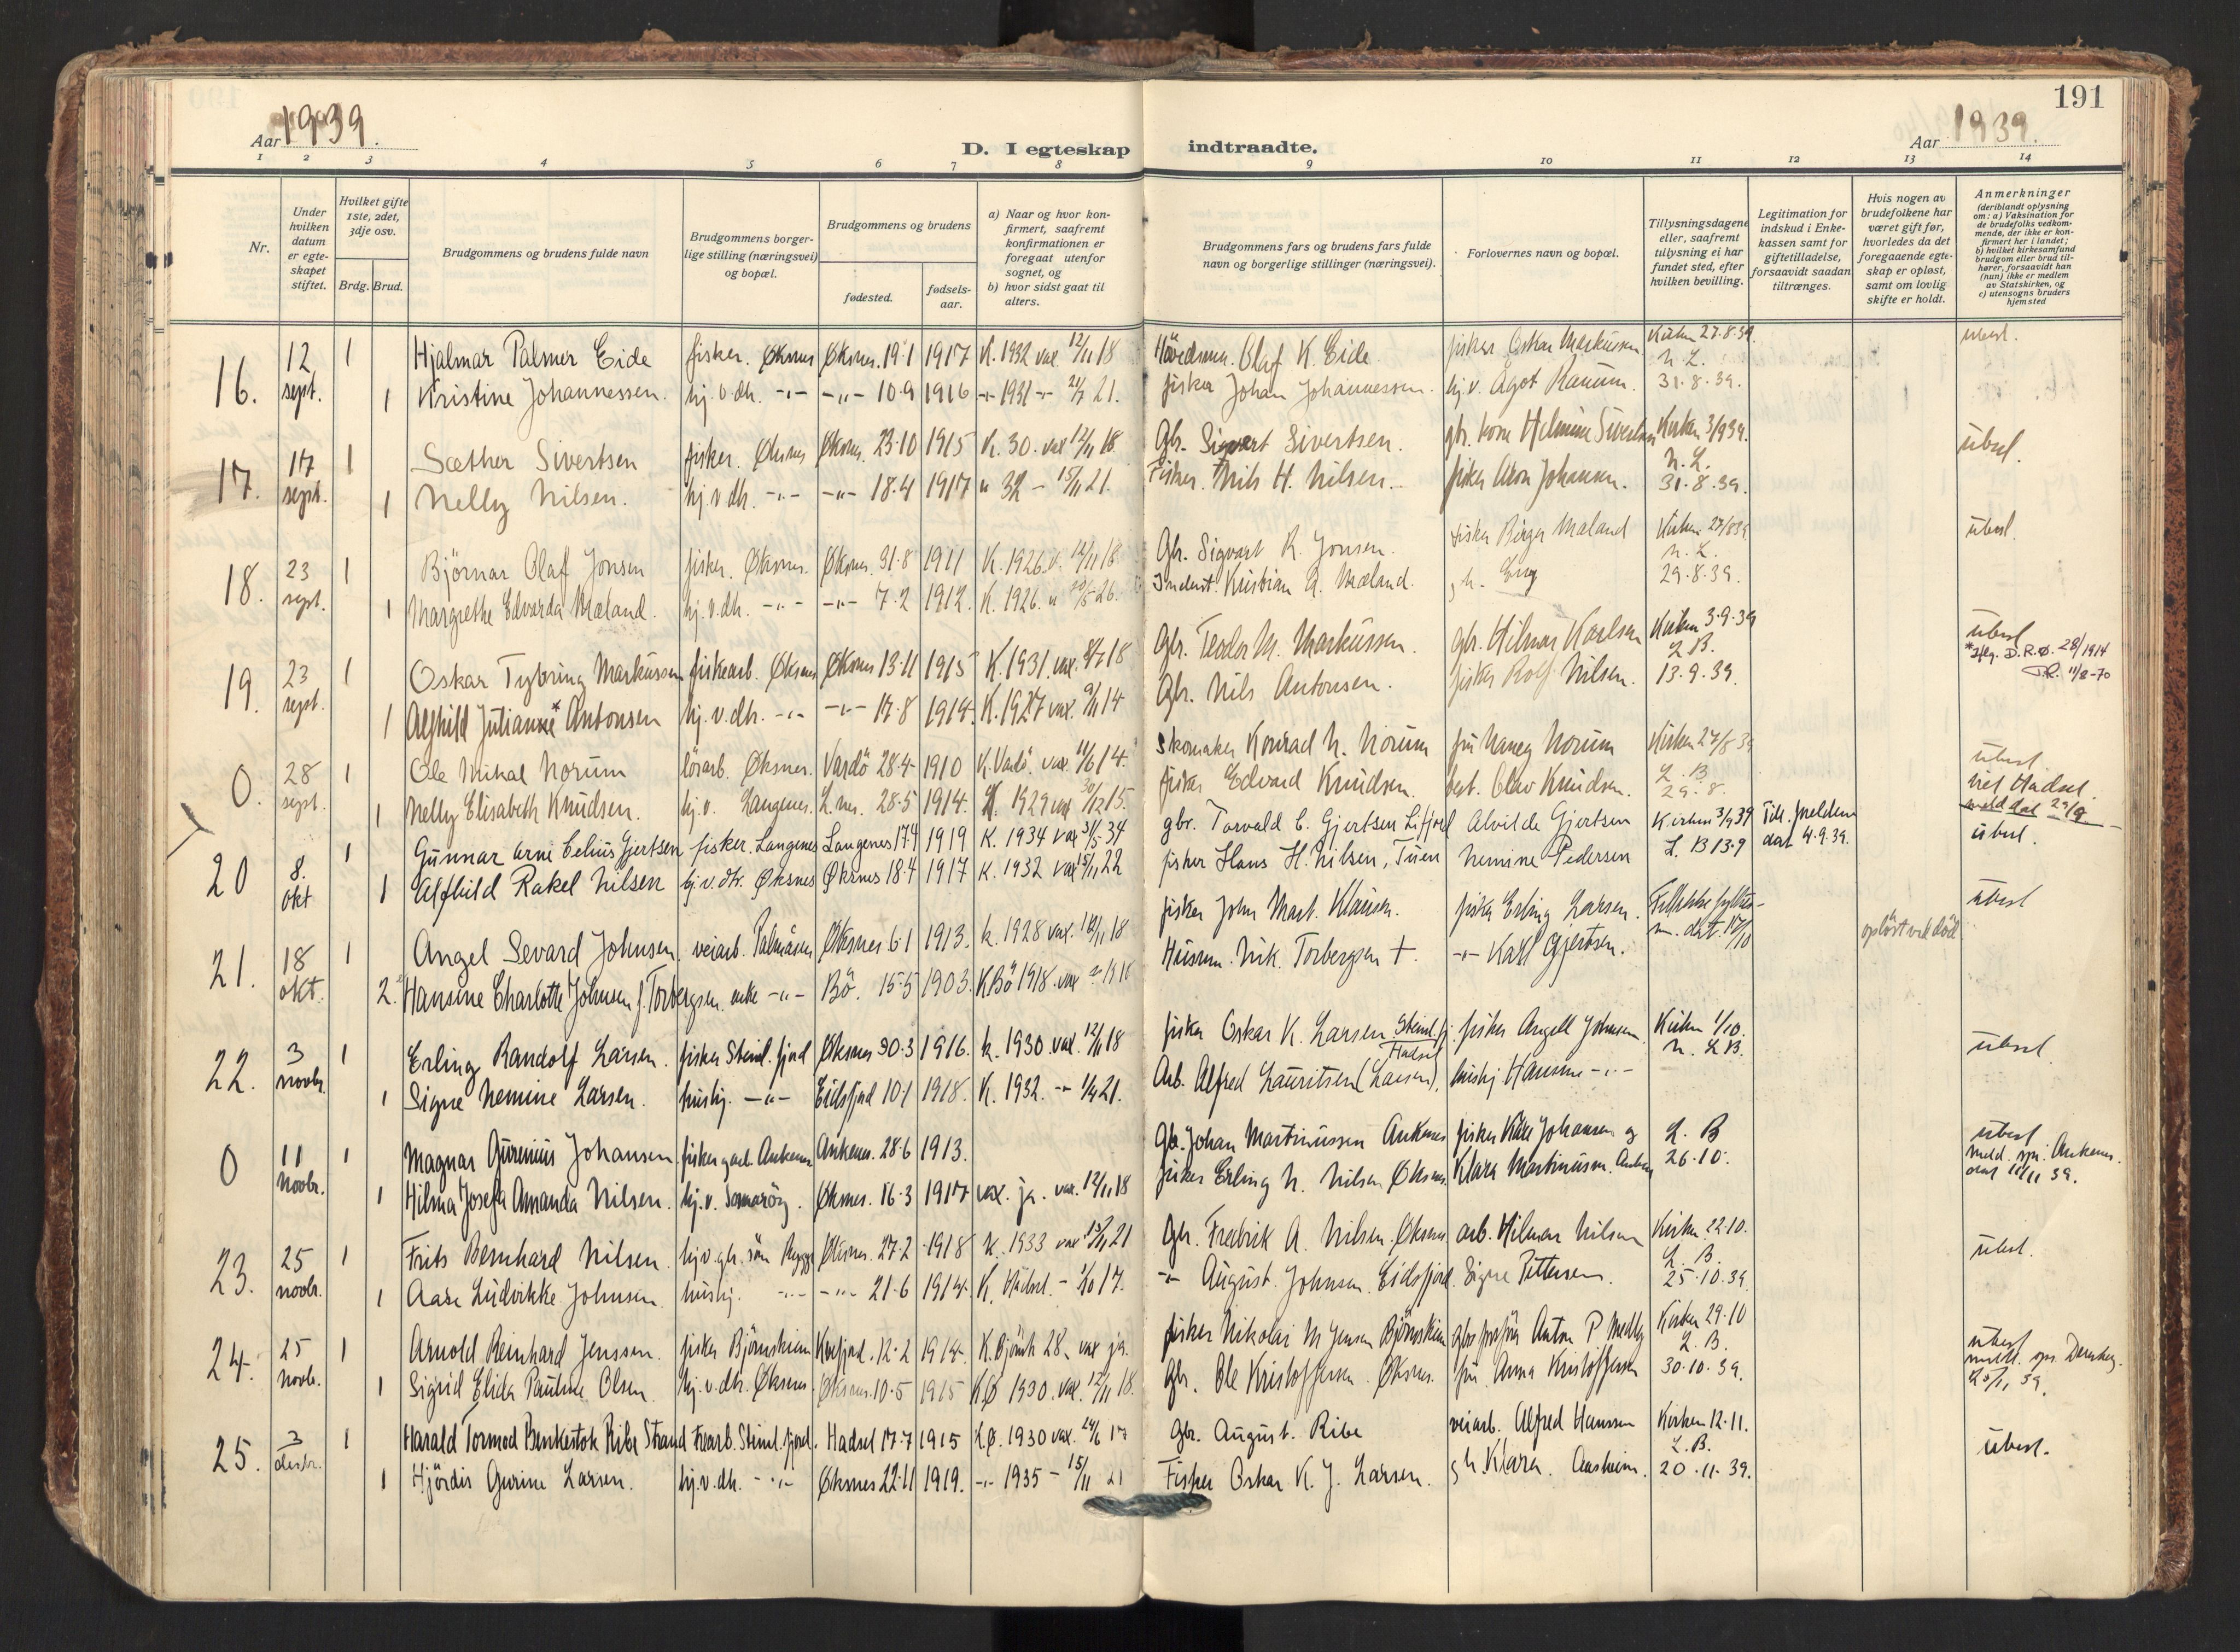 191
Aar 1939.
D. I egteskap indtraadte.
Aar 1939.
1 2 3 4 5 6 7 8 9 10 11 12 13 14
Nr.
Under hvilken datum er egteskapet stiftet.
Hvilket gifte 1ste, 2det, 3dje osv.
Brdg. Brud.
Brudgommens og brudens fulde navn
Brudgommens borgerlige stilling (næringsvei) og bopæl.
Brudgommens og brudens
fødested.
fødselsaar.
a) Naar og hvor konfirmert, saafremt konfirmationen er foregaat utenfor sognet, og
b) hvor sidst gaat til alters.
Brudgommens fars og brudens fars fulde navn og borgerlige stillinger (næringsvei).
Forlovernes navn og bopæl.
Tillysningsdagene eller, saafremt tillysning ei har fundet sted, efter hvilken bevilling.
Legitimation for indskud i Enkekassen samt for giftetilladelse, forsaavidt saadan tiltrænges.
Hvis nogen av brudefolkene har været gift før, hvorledes da det foregaaende egteskap er opløst, samt om lovlig skifte er holdt.
Anmerkninger (deriblandt oplysning om: a) Vaksination for de brudefolks vedkommende, der ikke er konfirmert her i landet; b) hvilket kirkesamfund brudgom eller brud tilhører, forsaavidt han (hun) ikke er medlem av Statskirken, og c) utensogns bruders hjemsted
16. 12 sept. 1 Hjalmar Palmer Eide fisker. Øksnes Øksnes. 19.1 1917 K. 1932 vax 12/11 18 Olaf K. Eide. fisker Oskar Markussen Kirken 27.8.39.
1 Kristine Johannessen. hj.v.dh. -"- -"- 10.9 1916 -"- 1931 -"- 21. fisker Johan Johannessen. hj.v. Agot Hanum. 31.8.39.
17. 17 sept. 1 Sæther Sivertsen fisker. Øksnes Øksnes. 23.10 1915 K. 30. vax 12/11 18 Gbr. Sigvart Sivertsen. gbr. kone Helmine Sivertsen Kirken 3/9 39.
1 Nelly Nilsen. hj.v.dh. -"- -"- 18.4 1917 " 32 - 15/11 21. Fisker. Nils H. Nilsen. fisker Aron Johansen. 31.8.39.
18. 23 sept. 1 Björnar Olaf Jonsen fisker. Øksnes. Øksnes. 31.8 1911 K. 1926. v. 12/11 18 Gbr. Sigvart R. Jonsen. fisker Birger Mæland Kirken 27/8 39
1 Margrethe Edvarda Mæland. hj.v.dh. -"- -"- 7.2 1912. K. 1926. Kristian A. Mæland. 29.8.39.
19. 23 sept. 1 Oskar Tybring Markussen fiskearb. Øksnes Øksnes 13.11 1915 K. 1931. vax. 18 Gbr. Teodor M. Markussen. gbr. Hilmar Karlsen Kirken 3.9.39 L.B.
*Iflg. D.R.Ø. 28/1914 11/8-70
1 Alfhild Julianne* Antonsen hj.v.dh. -"- -"- 17.8 1914. K. 1927 vax. 14 Gbr. Nils Antonsen. fisker Rolf Nilsen. 13.9.39.
0. 28 sept. 1 Ole Mikal Norum lösarb. Øksnes. Vardö 28.4 1910 K. Vardö. vax. 11/6 14. Skomaker Konrad N. Norum fru Nancy Norum Kirken 27/8 39 L.B.
1 Nelly Elisabeth Knudsen. hj.v. Langenes. L.nes. 28.5 1914. K. 1929 vax 30/12 15. fisker Edvard Knudsen. best. Olav Knudsen. 29.8. Hadsel.
20 8. okt 1 Gunnar Arne Celius Gjertsen fisker. Langenes Langenes 17.4 1919 K. 1934 vax 34 gbr. Torvald C. Gjertsen Alvilde Gjertsen Kirken 3/9 39 dat 4.9.39.
1 Alfhild Rakel Nilsen hj.v.dtr. Øksnes Øksnes 18.4 1917 K. 1932 vax 15/11 22 fisker Hans H. Nilsen, Tuen Nemine Pedersen L.B 13.9
21. 18 okt. 1 Angel Sevard Johnsen. veiarb. Øksnes 6.1 1913. K. 1928 vax. 12/11 18 fisker John Mart. fisker Erling Larsen.
2. Hansine Charlotte Johnsen f. Torbergsen. enke -"- Bö. 15.5 1903. K Bö 1918. vax Husm. Nik. Torbergsen +. -"- Karl Gjertsen. oplöst ved död
22. 3 novbr. 1 Erling Randolf Larsen. fisker Steinl.fjord Øksnes 30.3 1916. K. 1930. vax. 12/11 18 fisker Oskar K. Larsen fisker Angell Johnsen Kirken 1/10.
1 Signe Nemine Larsen. hushj. -"- Eidsfjord 10.1 1918. K. 1932. 21. Hadsel Arb. Alfred Lauritsen (Larsen). hushj Hansine -"-
0 11 novbr. 1 Magnar Gurenius Johansen. Ankenes. 28.6 1913. Gbr. Johan Martinussen Ankenes fisker Johansen og L.B
1 Hilma Josefa Amanda Nilsen. hj.v. Øksnes. 16.3 1917 vax. ja. vax. 12/11 18 fisker Erling N. Nilsen Øksnes. Klara Martinussen. 26.10.
23. 25 novbr. 1 Frits Bernhard Nilsen. Øksnes. 27.2 1918 K. 1933 vax 15/11 21 Gbr. Fredrik A. Nilsen. Øksnes arb. Hilmar Nilsen Kirken. 22.10. L.B.
1 Aase Ludvikke Johnsen. hushj. -"- -"- 21.6 1914. K. Hadsel. 17. -"- August. Johnsen. Eidsfjord. Signe Pettersen. 25.10.39
24. 25 novb. 1 Arnold Reinhard Jenssen. fisker Björnskinn Kvæfjord. 12.2 1914. K. Björnsk 28, vax ja. fisker Nikolai M Jensen Björnskinn Anton P Medby Kirken 29.10 L.B.
1 Sigrid Elida Pauline Olsen. hj.v.dh. Øksnes. Øksnes. 10.5 1915 K.Ø 1930. vax. 12/11 18. Gbr. Ole Kristoffersen. Øksnes. fru. Anna Kristoffersen 30.10.39.
25. 3 desbr. 1 Harald Tormod Benkestok Ribe Strand Steinl.fjord. Hadsel 17.7 1915 K.Ø. 1930 vax. 24/6 17 Gbr. August. Ribe veiarb. Alfred Hanssen Kirken 12.11. L.B.
1 Hjördis Gurine Larsen. hj.v.dh. -"- Øksnes 22.11 1919. -"- 1935 - 15/11 21 Fisker Oskar K. J. Larsen. Klara. Aasheim. 20.11.39.